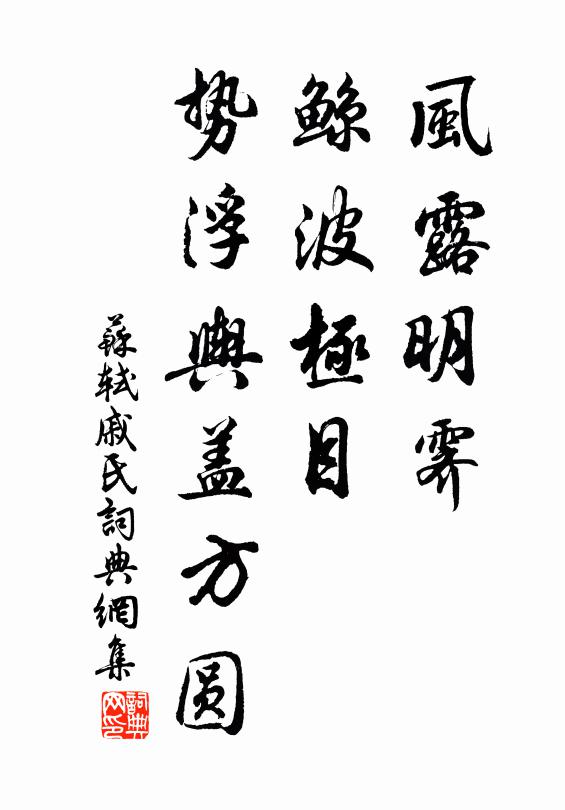 風露明霽
鯨波極目
勢浮輿盖方圆
蘇軾戚氏詞典網集
詞典网印